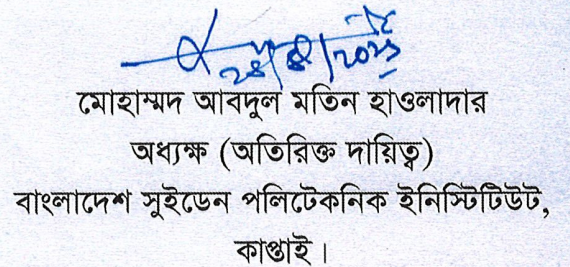 মোহাম্মদ আবদুল মতিন হাওলাদার
অধ্যক্ষ (অতিরিক্ত দায়িত্ব)
বাংলাদেশ সুইডেন পলিটেকনিক ইনিস্টিটিউট,
কাপ্তাই।